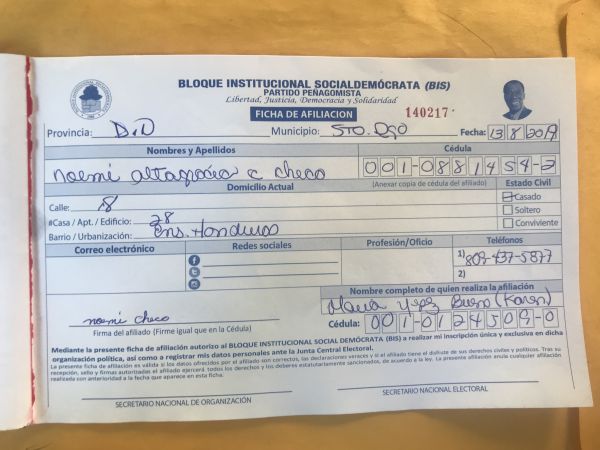 BLOQUE INSTITUCIONAL SOCIALDEMÓCRATA (BIS)
PARTIDO PEÑAGOMISTA
Libertad, Justicia, Democracia y Solidaridad
FICHA DE AFILIACION 140217
Provincia: D.N Municipio: STO. Dgo Fecha: 13 8 2019
Nombres y Apellidos Cédula
noemi altagracia c checo 001-0881454-2
Domicilio Actual (Anexar copia de cédula del afiliado) Estado Civil
Calle: 8 Casado
#Casa / Apt. / Edificio: 28 Soltero
Barrio / Urbanización: Ens. Honduras Conviviente
Correo electrónico Redes sociales Profesión/Oficio Teléfonos
1) 809-437-5877
2)
Nombre completo de quien realiza la afiliación
Maria Yepez Bueno (Karen)
noemi checo
Cédula: 001-0124509-0
Firma del afiliado (Firme igual que en la Cédula)
Mediante la presente ficha de afiliación autorizo al BLOQUE INSTITUCIONAL SOCIALDEMÓCRATA (BIS) a realizar mi inscripción única y exclusiva en dicha
organización política, así como a registrar mis datos personales ante la Junta Central Electoral.
La presente ficha de afiliación es válida si los datos ofrecidos por el afiliado son correctos, las declaraciones veraces y si el afiliado tiene el disfrute de sus derechos civiles y políticos. Tras su
recepción, sello y firmas autorizadas el afiliado ejercerá todos los derechos y los deberes estatutariamente sancionados, de acuerdo a la ley. La presente afiliación anula cualquier afiliación
realizada con anterioridad a la fecha que aparece en esta ficha.
SECRETARIO NACIONAL DE ORGANIZACIÓN SECRETARIO NACIONAL ELECTORAL